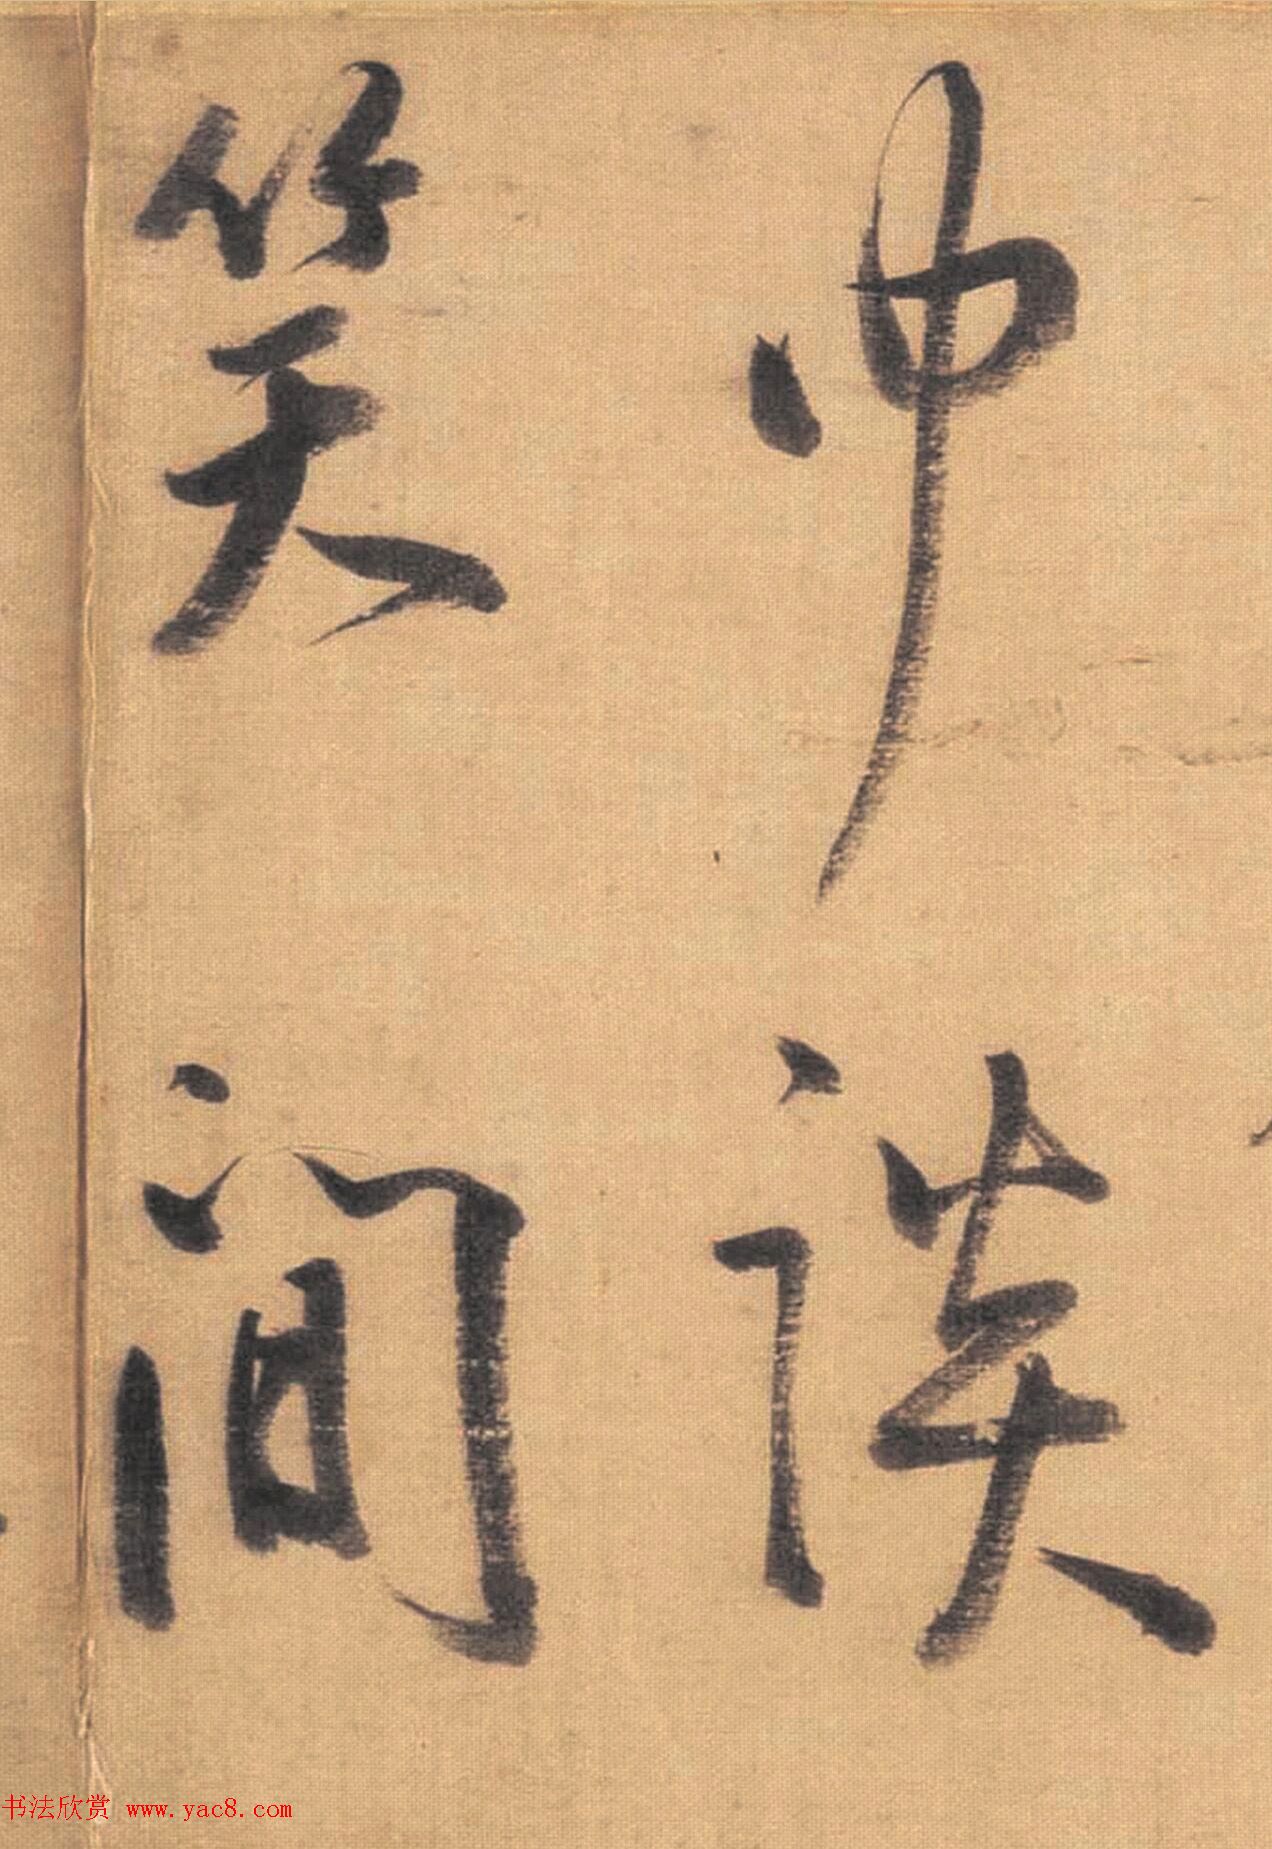 中談
笑間
书法欣赏 www.yac8.com